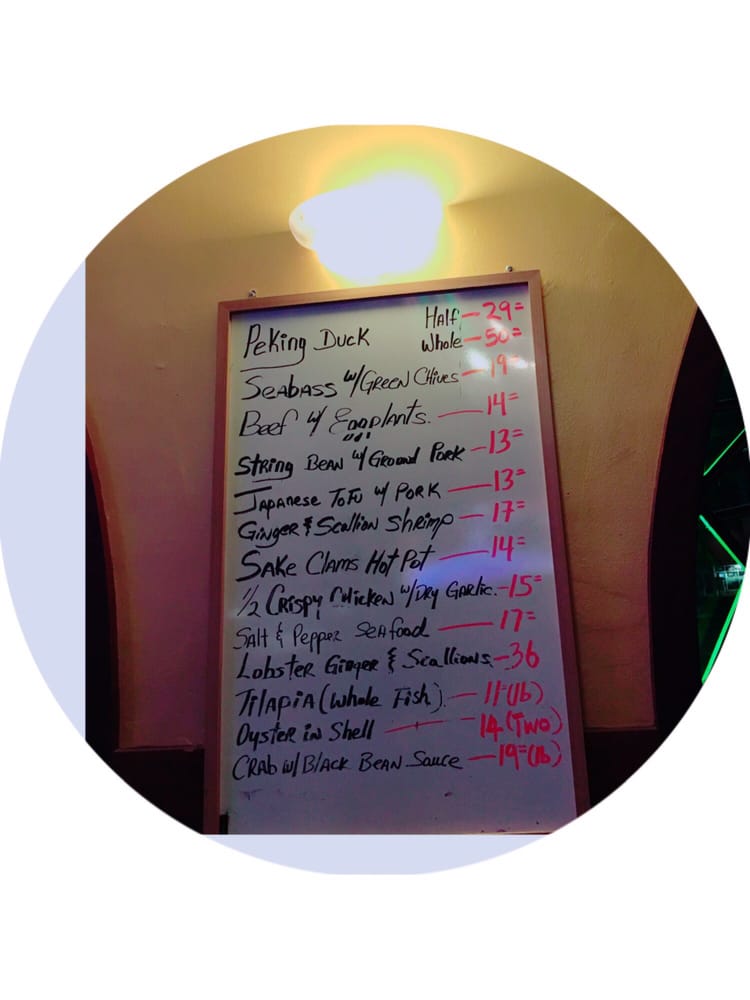 Peking Duck Half - 29=
Whole - 50=
Seabass w/Green Chives - 19=
Beef w/ Eggplants. - 14=
String Bean w/ Ground Pork - 13=
Japanese Tofu w/ Pork - 13=
Ginger & Scallion Shrimp - 17=
Sake Clams Hot Pot - 14=
1/2 Crispy Chicken w/Dry Garlic. - 15=
Salt & Pepper Seafood - 17=
Lobster Ginger & Scallions - 36
Tilapia (Whole Fish) - 11=(lb)
Oyster in Shell - 14(Two)
Crab w/Black Bean Sauce - 19=(lb)